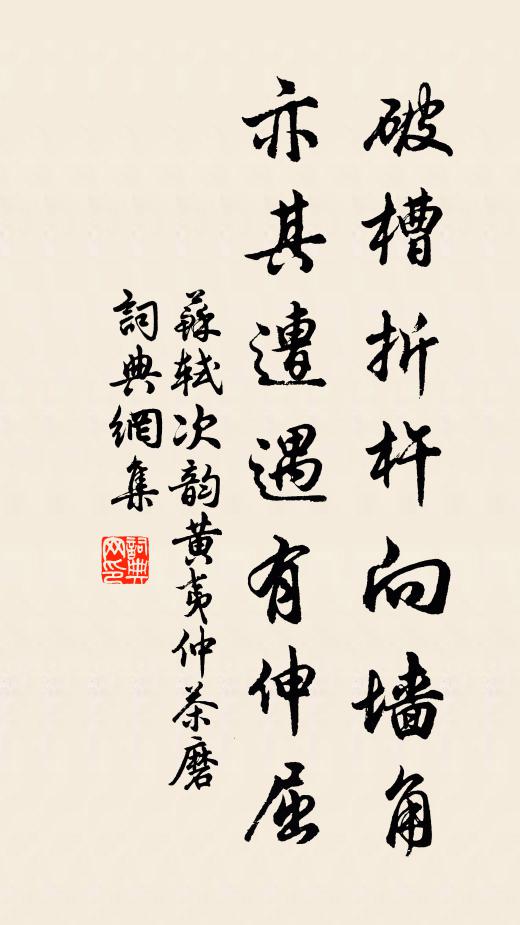 破槽折杵向墙角
亦其遭遇有伸屈
蘇軾次韵黄夷仲茶磨
詞典網集
詞典網印